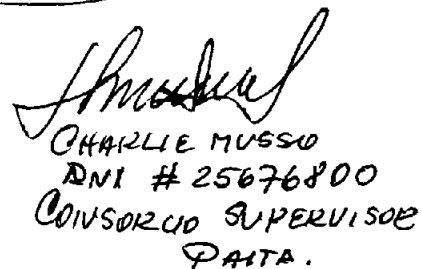 CHARLIE MUSSO
DNI # 25676800
CONSORCIO SUPERVISOR
PAITA.